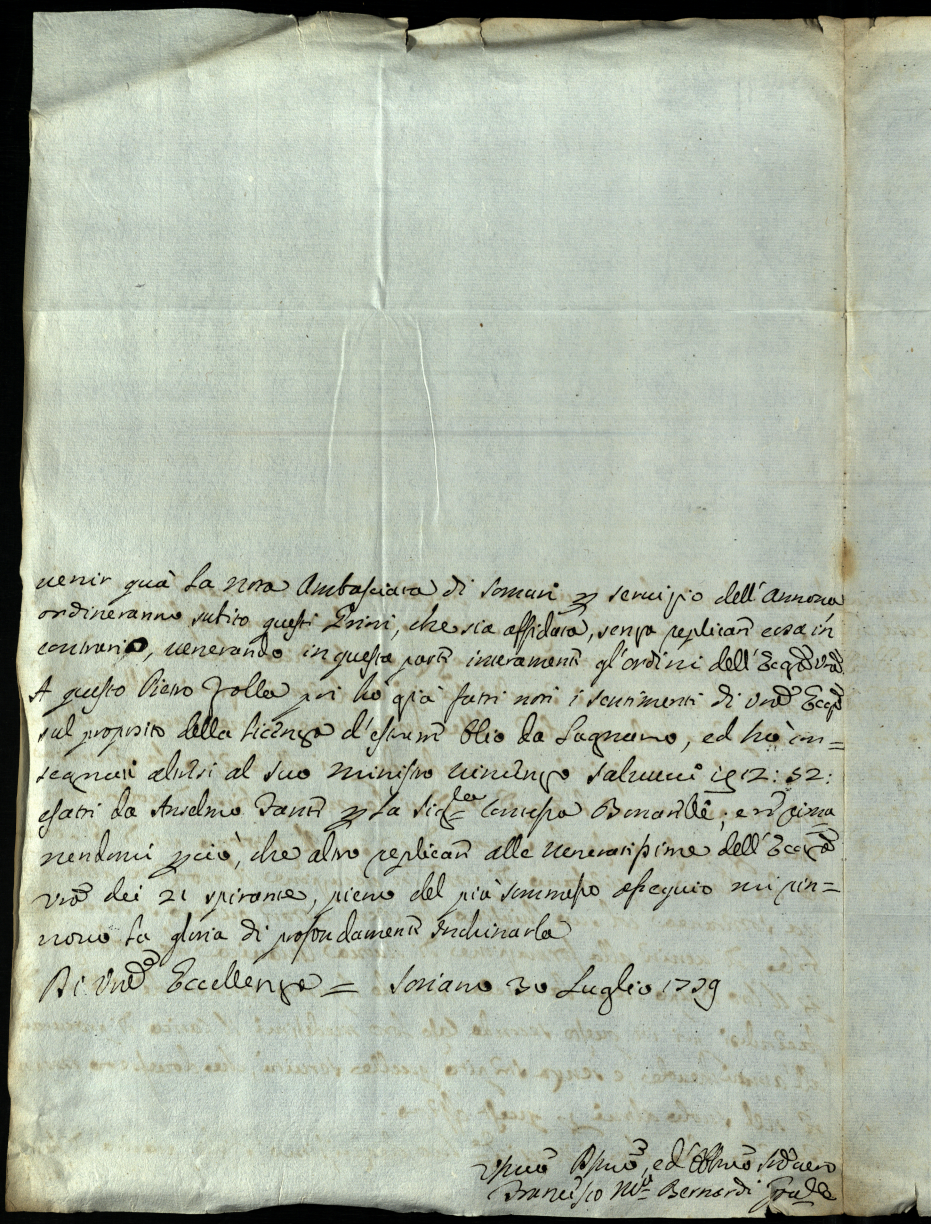 venir quà la nota Ambasciata di somari p servizio dell'Annona
ordineranno subito questi Priori, che sia affidata, senza replicare cosa in
contrario, venerando in questa parte interamente gl'ordini dell'Eccza Vra
A questo Pietro Zolla poi hò già fatti noti i sentimenti di Vre Ecce
sul proposito della licenza d'estrarre Olio da Bagnano, ed hò con=
segnati altresi al suo Ministro Vincenzo Salvucci 52:
esatti da Anselmo Santi p la Sigra Contessa Bonarelli; e rima
nendomi pciò, che altro replicare alle veneratissime dell'Eccza
Vra dei 21 spirante, pieno del più sommesso ossequio mi rin=
novo la gloria di profondamente inchinarla
Di Vre Eccellenze = Soriano 30 Luglio 1739
Umo Dmo, ed Obbmo Servre
Francesco Ma Bernardi